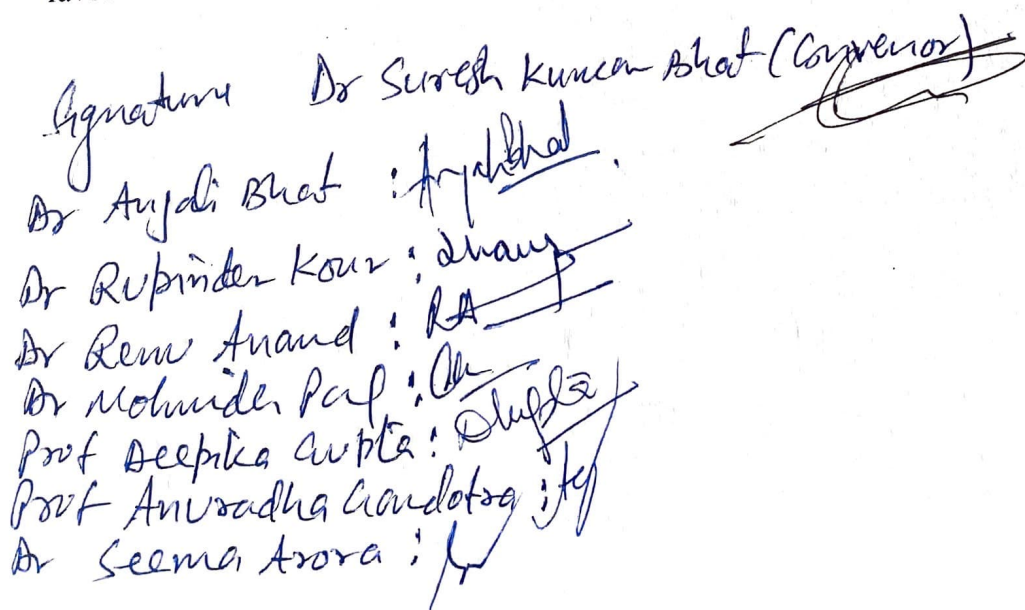 Signature Dr Suresh Kumar Bhat (Convenor)
Dr Anjali Bhat : Anjali Bhat
Dr Rupinder Kour :
Dr Renu Anand : RA
Dr Mohinder Pal :
Prof Deepika Gupta : DGupta
Prof Anuradha Gandotra :
Dr Seema Arora :